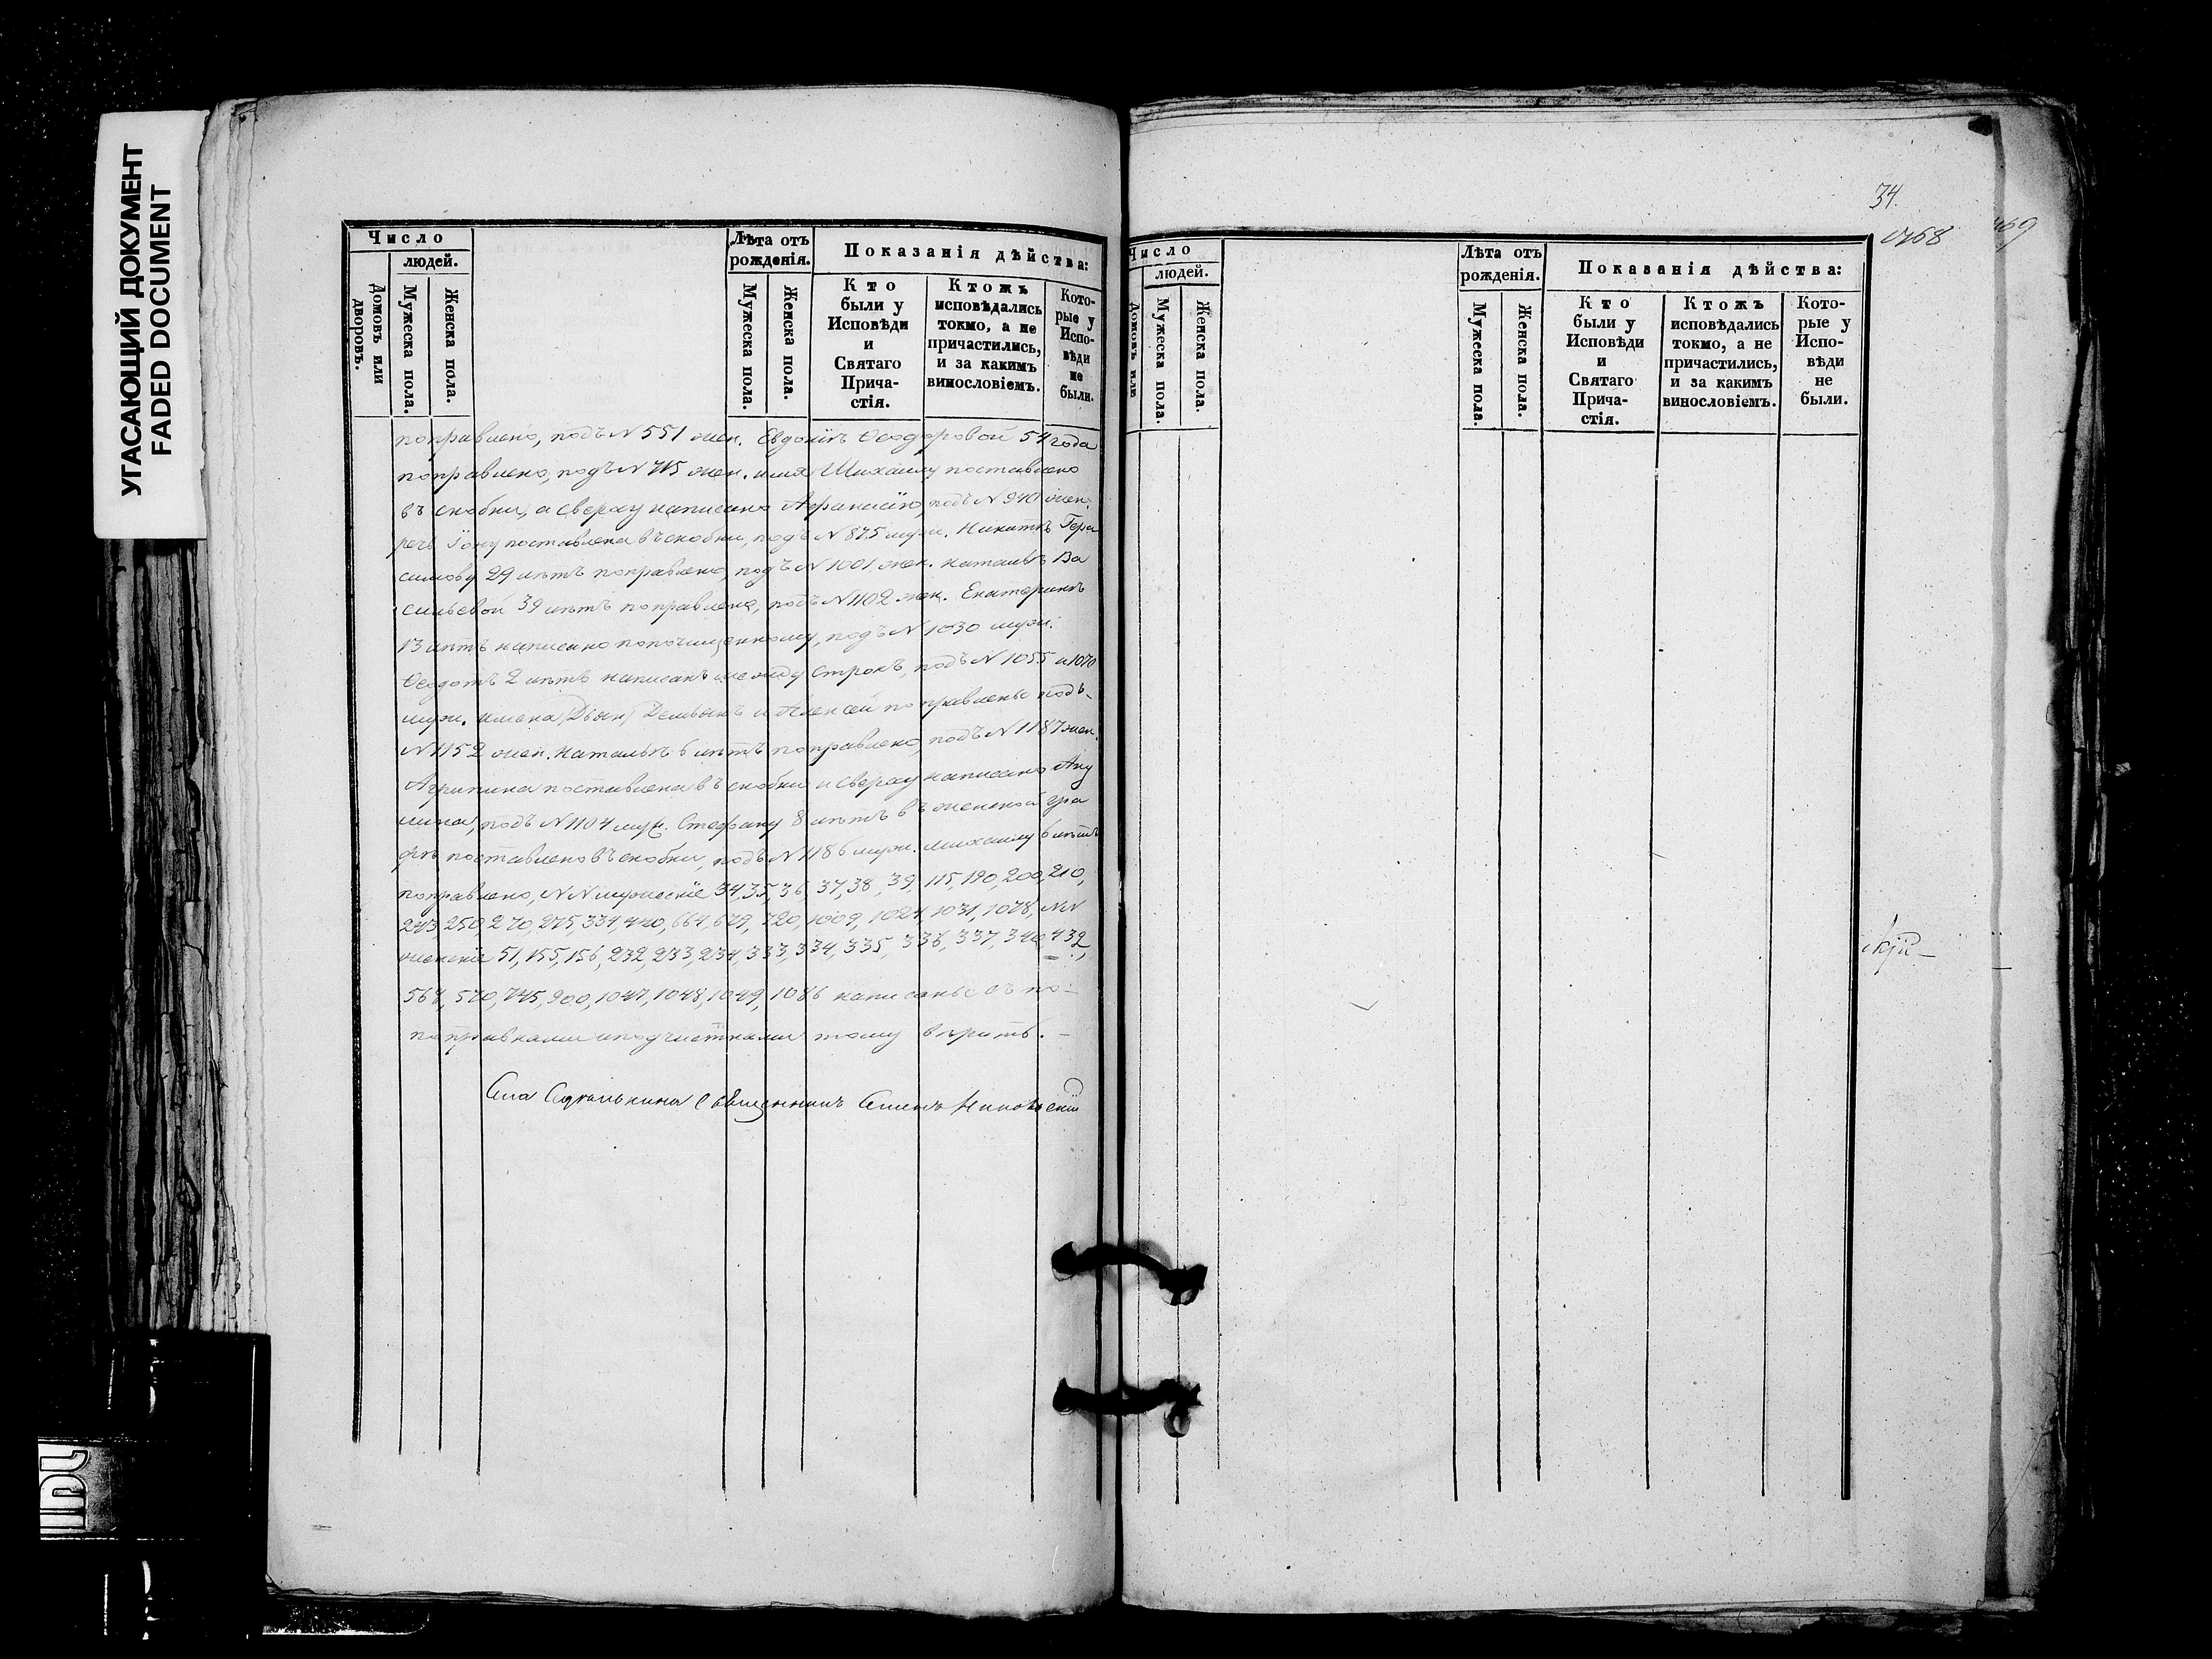 УГАСАЮЩИЙ ДОКУМЕНТ
FADED DOCUMENT
Число
людей.
Домовъ или дворовъ.
Мужеска пола.
Женска пола.
Лѣта отъ рожденія.
Мужеска пола.
Женска пола.
Показанія дѣйства:
Кто были у Исповѣди и Святаго Прича-стія.
Ктожъ исповѣдались токмо, а не причастились, и за какимъ винословіемъ.
Кото-рые у Испо-вѣди не были.
поправлено, подъ N 551 жен. Евдокіѣ Ѳеодоровой 54 года
поправлено, подъ N 715 жен. имя Михаилу поставлено
въ скобки, а сверху написано Афанасію, подъ N 940 жен.
речь Іону поставлена въ скобки, подъ N 875 муж. Никитѣ Гера
симову 29 лѣтъ поправлено, подъ N 1001 жен. Натальѣ Ва
сильевой 39 лѣтъ поправлено, подъ N 1102 жен. Екатеринѣ
13 лѣтъ написано по почищенному, подъ N 1030 муж.
Ѳеодотъ 2 лѣтъ написанъ между строкъ, подъ N 1055 и 1070
муж. имена Демьянъ и Алексѣй поправлены подъ
N 1152 жен. Натальѣ 6 лѣтъ поправлено, подъ N 1187 жен.
Агрипина поставлена въ скобки и сверху написано Аку
лина, подъ N 1104 муж. Стефану 8 лѣтъ въ женской гра
фѣ поставлено въ скобки, подъ N 1186 муж. Михаилу 6 лѣтъ
поправлено, NN мужескіе 34, 35, 36, 37, 38, 39, 115, 190, 200, 210,
243, 250, 270, 275, 334, 440, 664, 679, 720, 1009, 1024, 1031, 1078, NN
женскіе 51, 155, 156, 232, 233, 234, 333, 334, 335, 336, 337, 340, 432,
568, 570, 745, 900, 1047, 1048, 1049, 1086 написаны съ по-
поправками и подчистками тому вѣрить.
Села Священникъ
34.
Число
людей.
Домовъ или
Мужеска пола.
Женска пола.
Лѣта отъ рожденія.
Мужеска пола.
Женска пола.
Показанія дѣйства:
Кто были у Исповѣди и Святаго Прича-стія.
Ктожъ исповѣдались токмо, а не причастились, и за какимъ винословіемъ.
Кото-рые у Испо-вѣди не были.
468
469